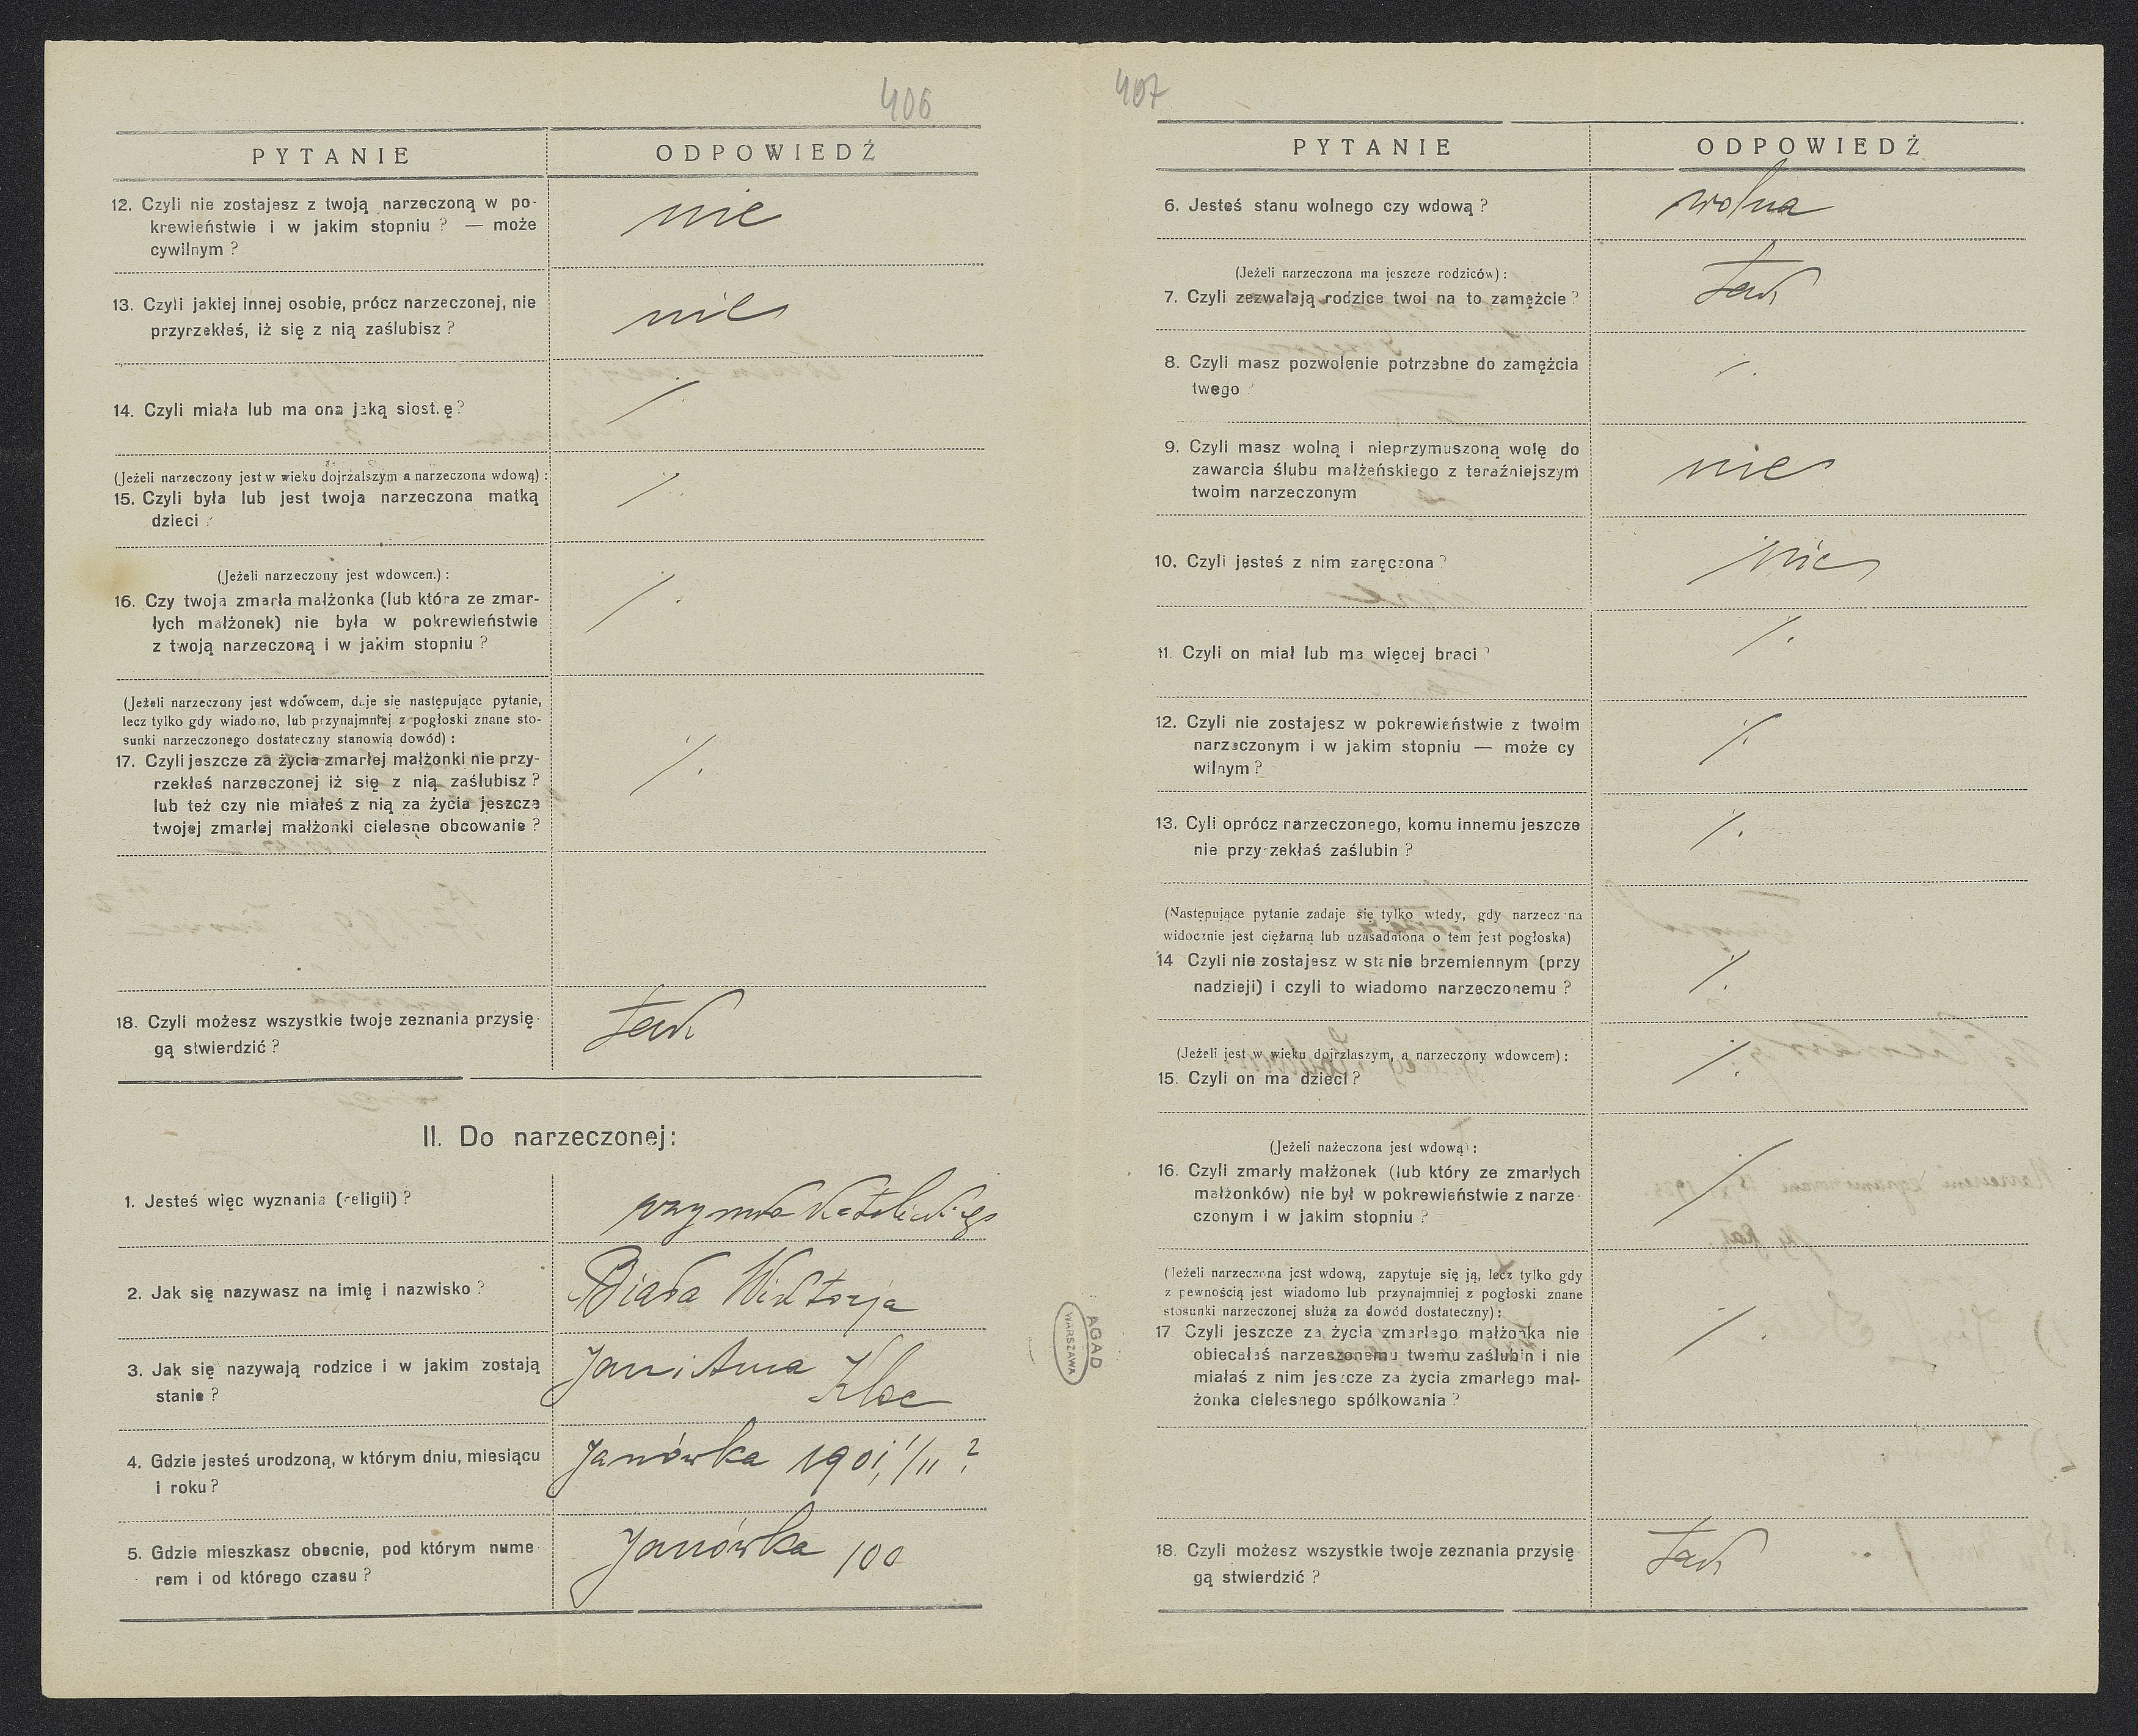 406
PYTANIE
ODPOWIEDŹ
12. Czyli nie zostajesz z twoją narzeczoną w po-
krewieństwie i w jakim stopniu ? — może
cywilnym ?
nie
13. Czyli jakiej innej osobie, prócz narzeczonej, nie
przyrzekłeś, iż się z nią zaślubisz ?
nie
14. Czyli miała lub ma ona jaką siost.ę?
/.
(Jeżeli narzeczony jest w wieku dojrzalszym a narzeczona wdową) :
15. Czyli była lub jest twoja narzeczona matką
dzieci ?
/.
(Jeżeli narzeczony jest wdowcen.) :
16. Czy twoja zmarła małżonka (lub która ze zmar-
łych małżonek) nie była w pokrewieństwie
z twoją narzeczoną i w jakim stopniu ?
/.
(Jeżeli narzeczony jest wdowcem, daje się następujące pytanie,
lecz tylko gdy wiadomo, lub przynajmniej z pogłoski znane sto-
sunki narzeczonego dostateczny stanowią dowód) :
17. Czyli jeszcze za życia zmarłej małżonki nie przy-
rzekłeś narzeczonej iż się z nią zaślubisz ?
lub też czy nie miałeś z nią za życia jeszcze
twojej zmarłej małżonki cielesne obcowanie ?
/.
18. Czyli możesz wszystkie twoje zeznania przysię-
gą stwierdzić ?
tak
II. Do narzeczonej:
1. Jesteś więc wyznania (religii) ?
rzymsko katolickiego
2. Jak się nazywasz na imię i nazwisko ?
Biała Wiktorja
3. Jak się nazywają rodzice i w jakim zostają
stanie ?
Jan i Anna
Kloc
4. Gdzie jesteś urodzoną, w którym dniu, miesiącu
i roku ?
Janówka 1901, 1/11 ?
5. Gdzie mieszkasz obecnie, pod którym nume
rem i od którego czasu ?
Janówka 100
AGAD
WARSZAWA
407
PYTANIE
ODPOWIEDŹ
6. Jesteś stanu wolnego czy wdową ?
wolna
(Jeżeli narzeczona ma jeszcze rodziców) :
7. Czyli zezwalają rodzice twoi na to zamężcie ?
tak
8. Czyli masz pozwolenie potrzebne do zamężcia
twego ?
/.
9. Czyli masz wolną i nieprzymuszoną wolę do
zawarcia ślubu małżeńskiego z teraźniejszym
twoim narzeczonym
nie
10. Czyli jesteś z nim zaręczona ?
nie
11. Czyli on miał lub ma więcej braci ?
/.
12. Czyli nie zostajesz w pokrewieństwie z twoim
narzeczonym i w jakim stopniu — może cy
wilnym ?
/.
13. Cyli oprócz narzeczonego, komu innemu jeszcze
nie przyrzekłaś zaślubin ?
/.
(Następujące pytanie zadaje się tylko wtedy, gdy narzecz na
widocznie jest ciężarną lub uzasadniona o tem jest pogłoska)
14 Czyli nie zostajesz w stanie brzemiennym (przy
nadzieji) i czyli to wiadomo narzeczonemu ?
/.
(Jeżeli jest w wieku dojrzlaszym, a narzeczony wdowcem) :
15. Czyli on ma dzieci ?
/.
(Jeżeli nażeczona jest wdową) :
16. Czyli zmarły małżonek (lub który ze zmarłych
małżonków) nie był w pokrewieństwie z narze
czonym i w jakim stopniu ?
/.
(Jeżeli narzeczona jest wdową, zapytuje się ją, lecz tylko gdy
z pewnością jest wiadomo lub przynajmniej z pogłoski znane
stosunki narzeczonej służą za dowód dostateczny) :
17 Czyli jeszcze za życia zmarłego małżonka nie
obiecałaś narzeczonemu twemu zaślubin i nie
miałaś z nim jeszcze za życia zmarłego mał-
żonka cielesnego spółkowania ?
/.
18. Czyli możesz wszystkie twoje zeznania przysię-
gą stwierdzić ?
tak